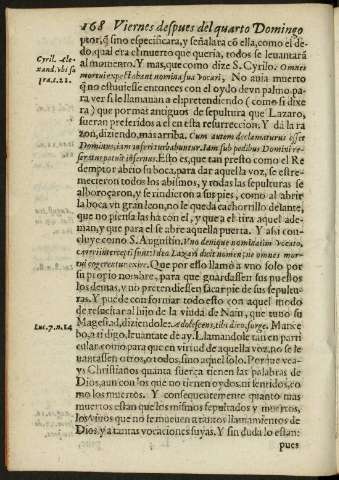 168 Viernes despues del quarto Domingo
ptor, q̃ sino especificara, y señalara cõ ella, como el de-
do, qual era el muerto que queria, todos se leuantarã
al momento. Y mas, que como dize S. Cyrilo. Omnes
Cyril. Ale-
xand. vbi su
pra. c. 22.
mortui expectabant nomina sua vocari. No auia muerto
q̃ no estuuiesse entonces con el oydo devn palmo pa-
ra ver si le llamauan a el pretendiendo (como si dixe
ra) que por mas antiguos de sepultura que Lazaro,
fueran preferidos a el en esta resurreccion. Y dá la ra
zon, diziendo, mas arriba. Cum autem declamaturus esset
Dominus, iam inferi turbabuntur. Iam sub pedibus Domini re-
seratus patuit infernus. Esto es, que tan presto como el Re
demptor abrio su boca, para dar aquella voz, se estre-
mecieron todos los abismos, y todas las sepulturas se
alborotaron, y se rindieron a sus pies, como al abrir
la boca vn gran leon, no le queda cachorrillo delante,
que no piensa las ha con el, y que a el tira aquel ade-
man, y que para el se abre aquella puerta. Y assi con-
cluye como S. Augustin. Vno denique nominatim vocato,
mor-
tui cogerentur exire. Que por esso llamò a vno solo por
su proprio nombre, para que guardassen sus puestos
los demas, y no pretendiessen sacar pie de sus sepultu-
ras. Y puede conformar todo esto con aquel modo
de resucitar al hijo de la viuda de Naín, que tuuo su
Luc. 7. n. 14
Magestad, diziendole. Adolescens, tibi dico, surge. Mãce
bo, a ti digo, leuantate de ay. Llamandole tan en parti
cular, como para que en virtud de aquella voz, no se le
uantassen otros, o todos, sino aquel solo. Porque vea-
ys Christianos quanta fuerça tienen las palabras de
Dios, aun con los que no tienen oydos, ni sentidos, co
mo los muertos. Y consequentemente quanto mas
muertos estan que los mismos sepultados y muertos,
los viuos que no se mueuen a tantos llamamientos de
Dios, y a tantas vocaciones suyas. Y sin duda lo estan:
pues